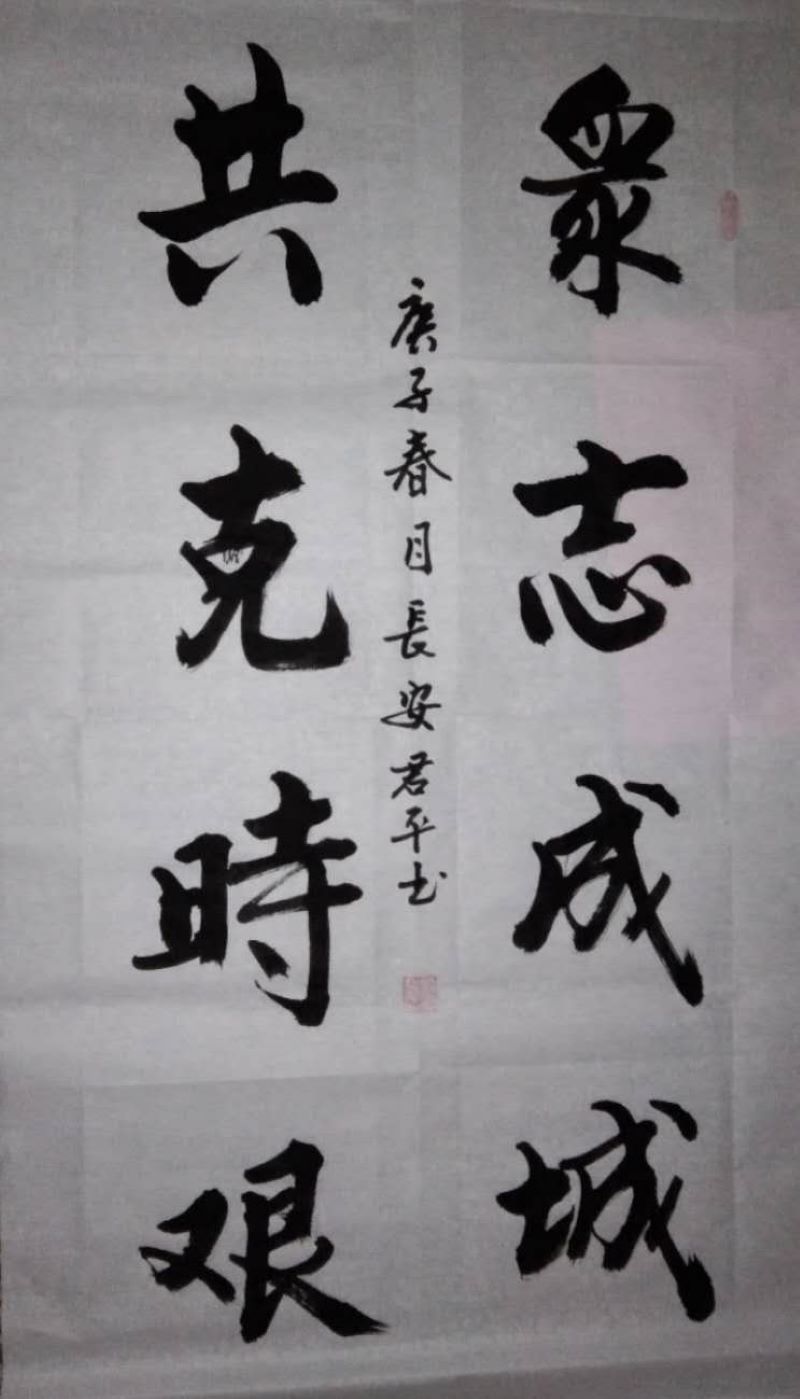 眾志成城
共克時艰
庚子春月長安君平书